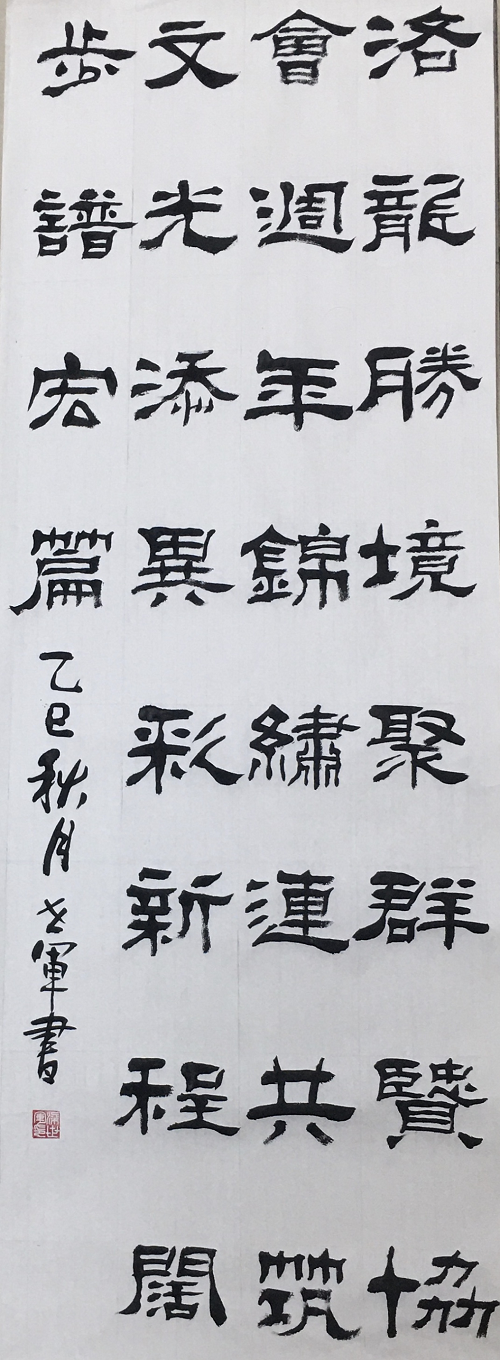 洛龍勝境聚群賢協
會週年錦繡連共筑
文光添異彩新程闊
步譜宏篇乙巳秋月軍書